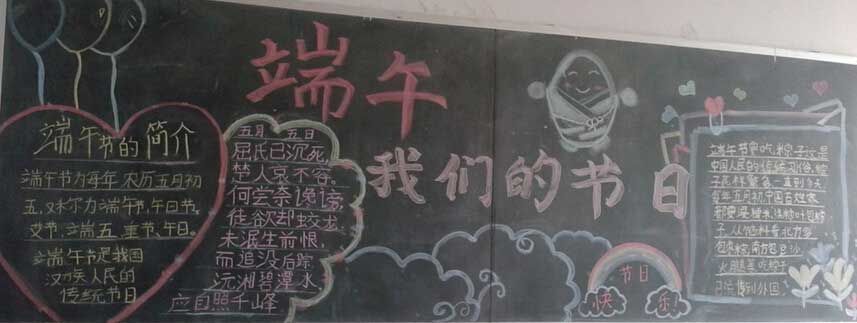 端午
我们的节日
端午节的简介
端午节为每年农历五月初
五,又称为端午节,午日节,
艾节,端五,重节,午日。
端午节是我国
汉族人民的
传统节日
五月五日
屈氏已沉死
楚人哀不容。
何尝奈谗谤,
徒欲却蛟龙
未泯生前恨,
而追没后踪
沅湘碧潭水
应自照千峰
节日
快乐
端午节要吃粽子这是
中国人民的传统习俗,粽
每年五月初中国百姓家
都要浸糯米,洗粽叶包粽
子,从馅料看北方多
包枣粽,南方包豆沙
火腿
传到外国